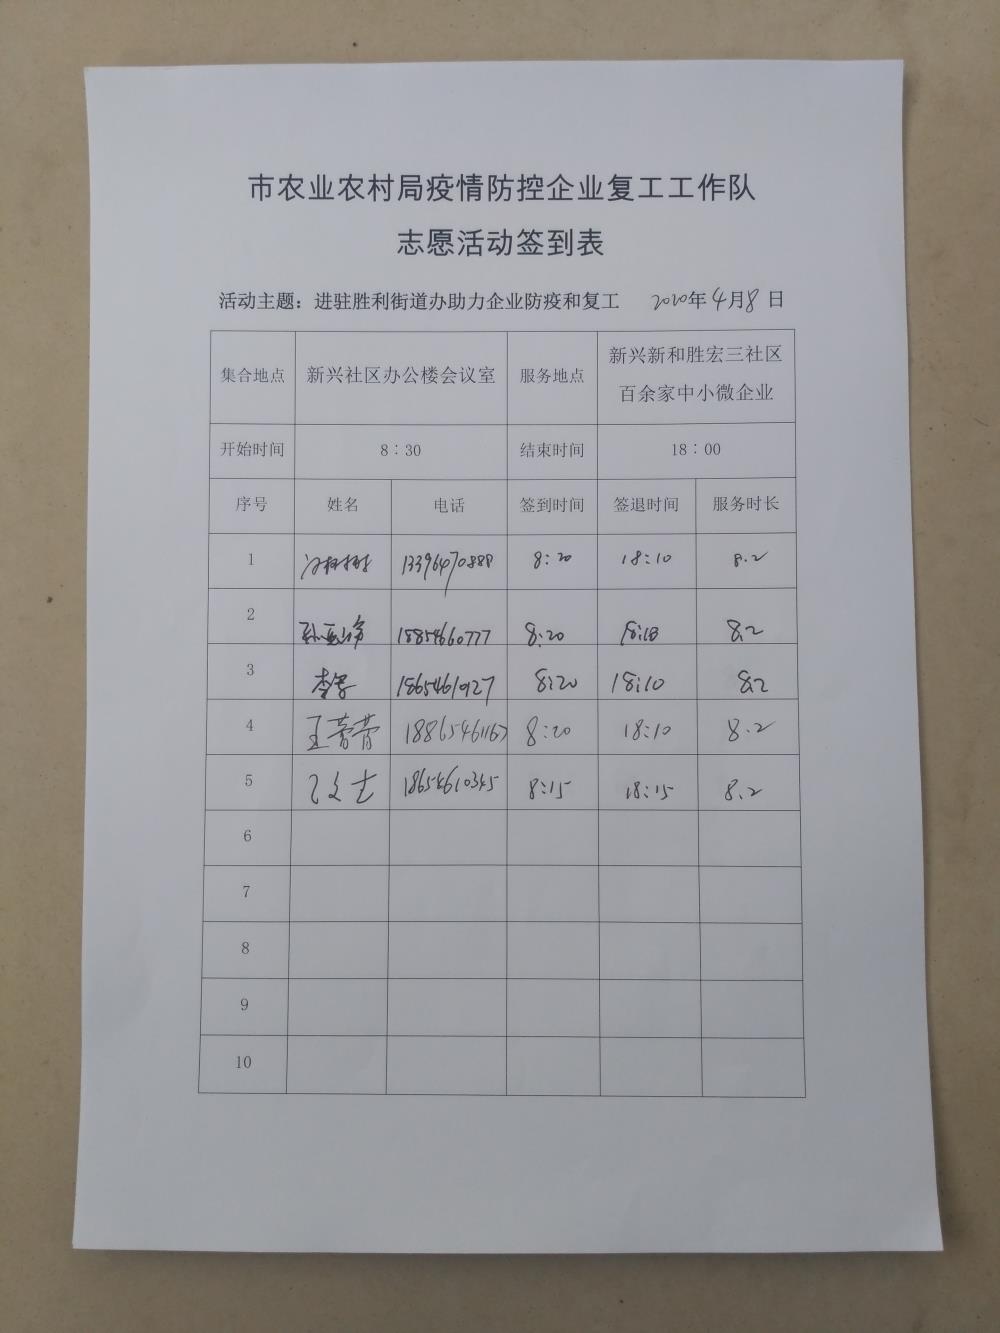 市农业农村局疫情防控企业复工工作队
志愿活动签到表
活动主题：进驻胜利街道办助力企业防疫和复工 2020年4月8日
集合地点 新兴社区办公楼会议室 服务地点 新兴新和胜宏三社区
百余家中小微企业
开始时间 8：30 结束时间 18：00
序号 姓名 电话 签到时间 签退时间 服务时长
1 13396470888 8:20 18:10 8.2
2 18854660777 8:20 18:10 8.2
3 18654610127 8:20 18:10 8.2
4 王蕾蕾 8:20 18:10 8.2
5 18654610345 8:15 18:15 8.2
6
7
8
9
10